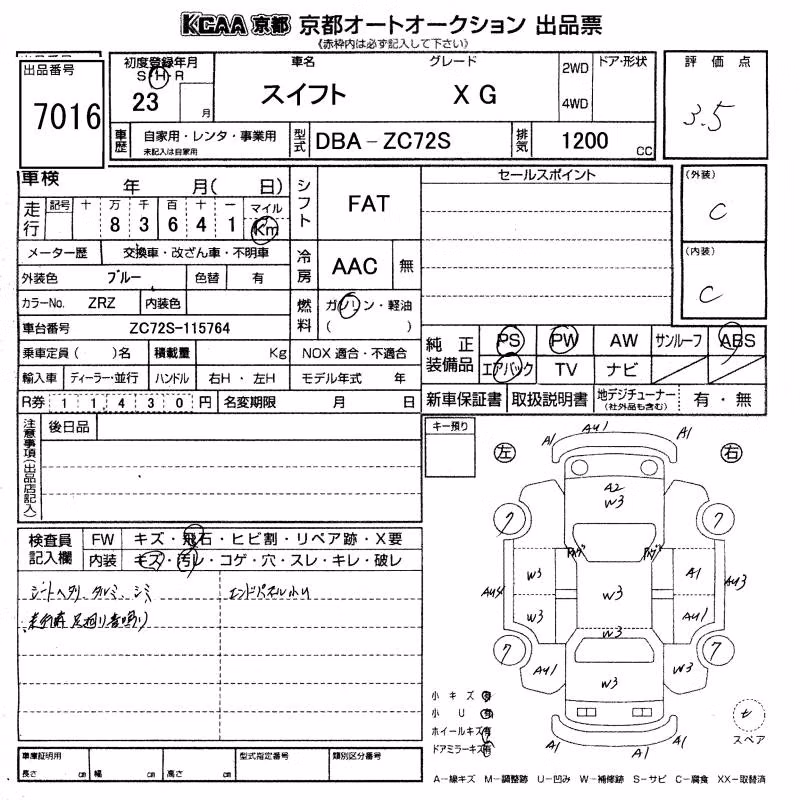 KCAA 京都 京都オートオークション 出品票
《赤枠内は必ず記入して下さい》
出品番号
7016
初度登録年月
S・H・R
23 月
車名
スイフト
グレード
XG
2WD
4WD
ドア・形状
評価点
3.5
車歴
自家用・レンタ・事業用
未記入は自家用
型式
DBA-ZC72S
排気
1200 CC
車検 年 月( 日)
走行
記号 十 万 千 百 十 一 マイル
8 3 6 4 1 Km
シフト
FAT
セールスポイント
(外装)
C
(内装)
C
メーター歴 交換車・改ざん車・不明車
冷房
AAC 無
外装色 ブルー 色替 有
カラーNo. ZRZ 内装色
燃料
ガソリン・軽油
( )
車台番号 ZC72S-115764
乗車定員( )名 積載量 Kg NOX適合・不適合
輸入車 ディーラー・並行 ハンドル 右H・左H モデル年式 年
R券 11430円 名変期限 月 日
純正装備品
PS PW AW サンルーフ ABS
エアバック TV ナビ
新車保証書 取扱説明書 地デジチューナー
(社外品も含む)
有・無
注意事項(出品店記入)
後日品
キー預り
左
右
検査員記入欄
FW キズ・飛石・ヒビ割・リペア跡・X要
内装 キズ・汚レ・コゲ・穴・スレ・キレ・破レ
シートヘタリ、タルミ、シミ
エンドパネル小U
足廻り音鳴り
A1 AU1 A1
A2
W3
7 7
W3 A1
AU3
W3
W3 AU1
W3
7 7
AU1 W3 W3
A1 A1 A1
小キズ有
小U有
ホイールキズ有
ドアミラーキズ有
スペア
車庫証明用
長さ cm 幅 cm 高さ cm
型式指定番号
類別区分番号
A-線キズ M-調整跡 U-凹み W-補修跡 S-サビ C-腐食 XX-取替済